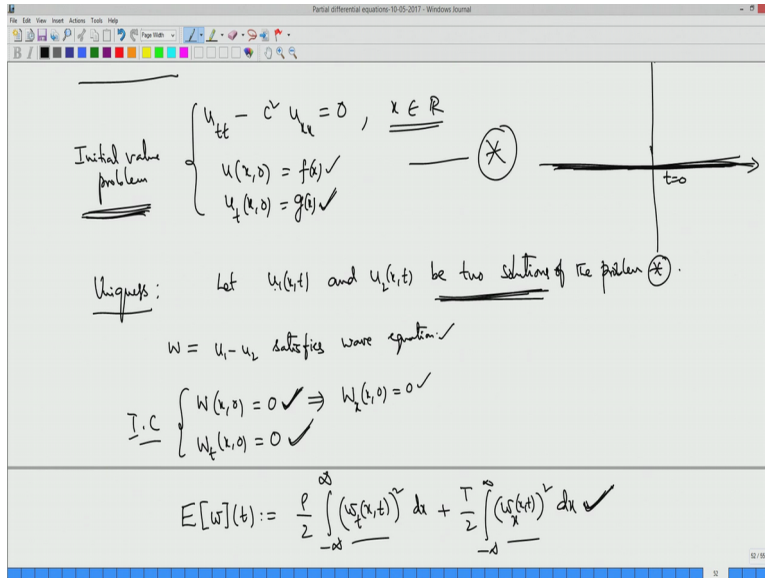 Partial differential equations-10-05-2017 - Windows Journal
File Edit View Insert Actions Tools Help
Page Width
B I
u_tt - c² u_xx = 0 , x ∈ ℝ
Initial value problem
u(x,0) = f(x) ✓
u_t(x,0) = g(x) ✓
(*)
t=0
Uniquness : Let u₁(x,t) and u₂(x,t) be two solutions of the problem (*).
W = u₁-u₂ satisfies wave equation. ✓
I.C
W(x,0) = 0 ✓ ⇒ W_x(x,0) = 0 ✓
W_t(x,0) = 0 ✓
E[w](t) := ρ/2 ∫_{-∞}^{∞} (w_t(x,t))² dx + T/2 ∫_{-∞}^{∞} (w_x(x,t))² dx ✓
52 / 55
52